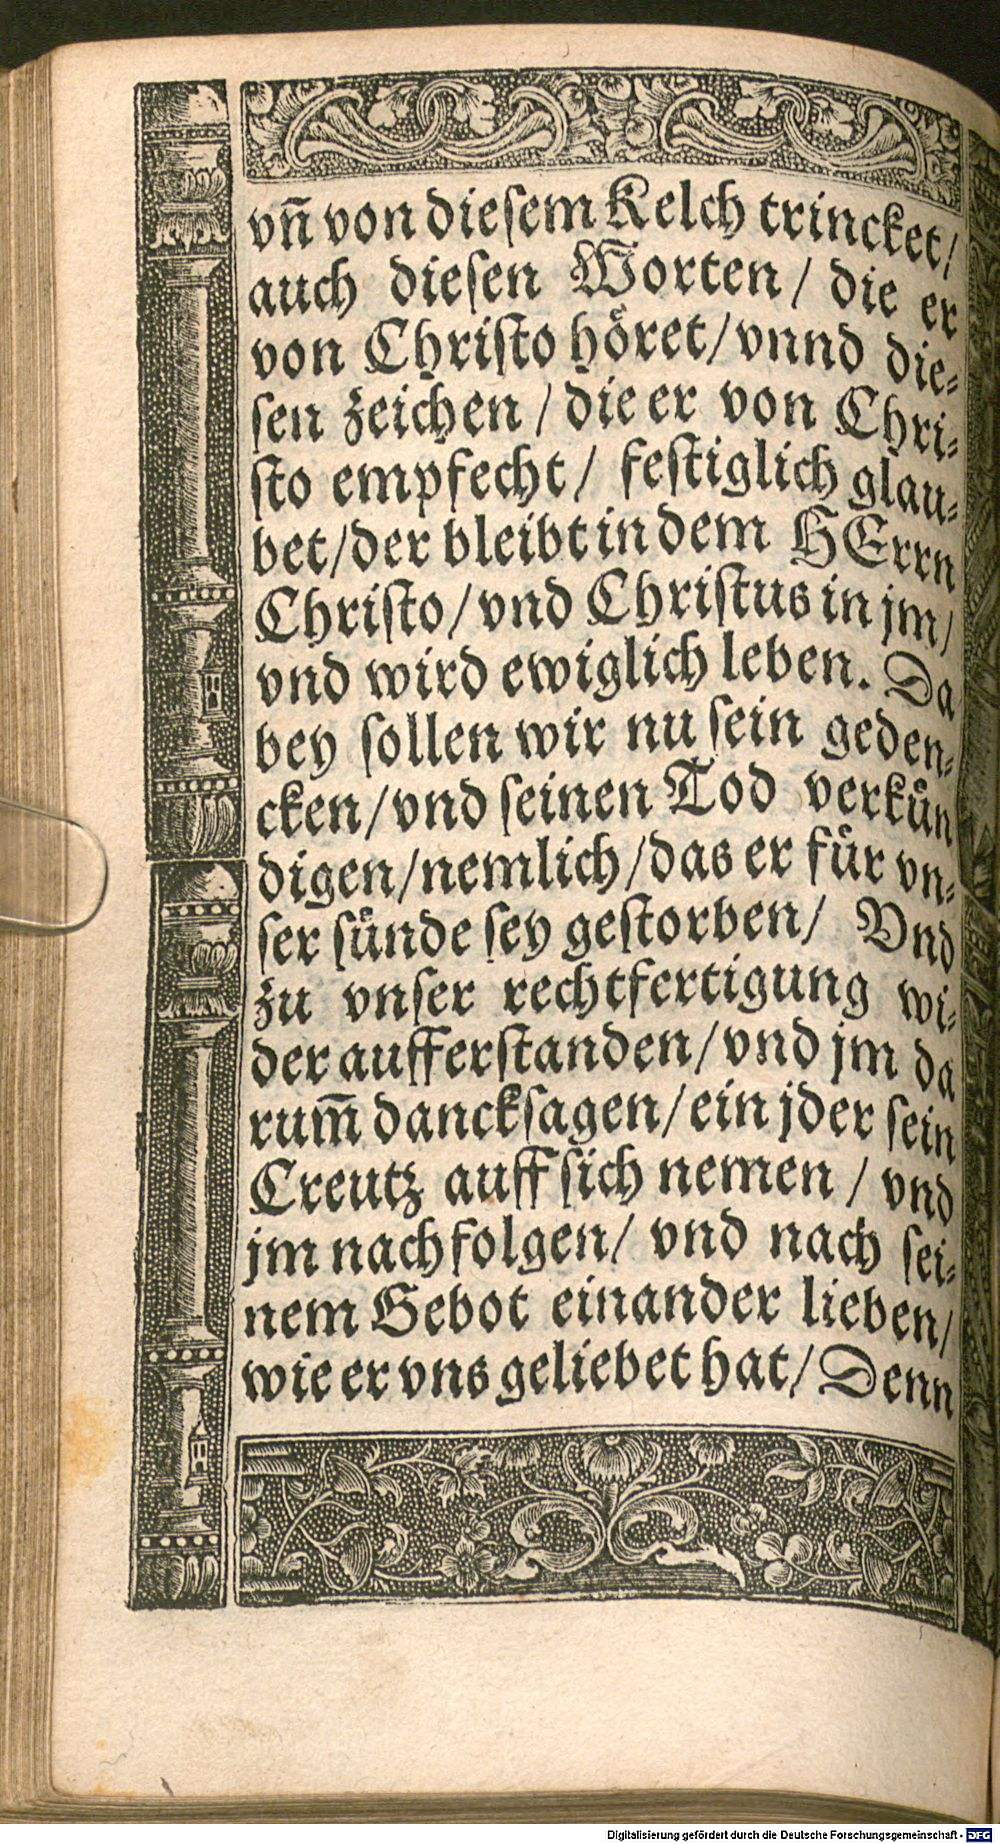 vñ von dieſem Kelch trincket/
auch dieſen Worten / die er
von Chriſto hoͤret/ vnnd die⸗
ſen zeichen / die er von Chri⸗
ſto empfecht/ feſtiglich glau⸗
bet/der bleibt in dem HErrn
Chriſto/ vnd Chriſtus in jm/
vnd wird ewiglich leben. Da
bey ſollen wir nu ſein geden⸗
cken/vnd ſeinen Tod verkuͤn
digen/nemlich/das er fuͤr vn⸗
ſer ſuͤnde ſey geſtorben/ Vnd
zu vnſer rechtfertigung wi⸗
der aufferſtanden/vnd jm da
rum̃ danckſagen/ein jder ſein
Creutz auff ſich nemen / vnd
jm nachfolgen/ vnd nach ſei⸗
nem Gebot einander lieben/
wie er vns geliebet hat/ Denn
Digitalisierung gefördert durch die Deutsche Forschungsgemeinschaft - DFG